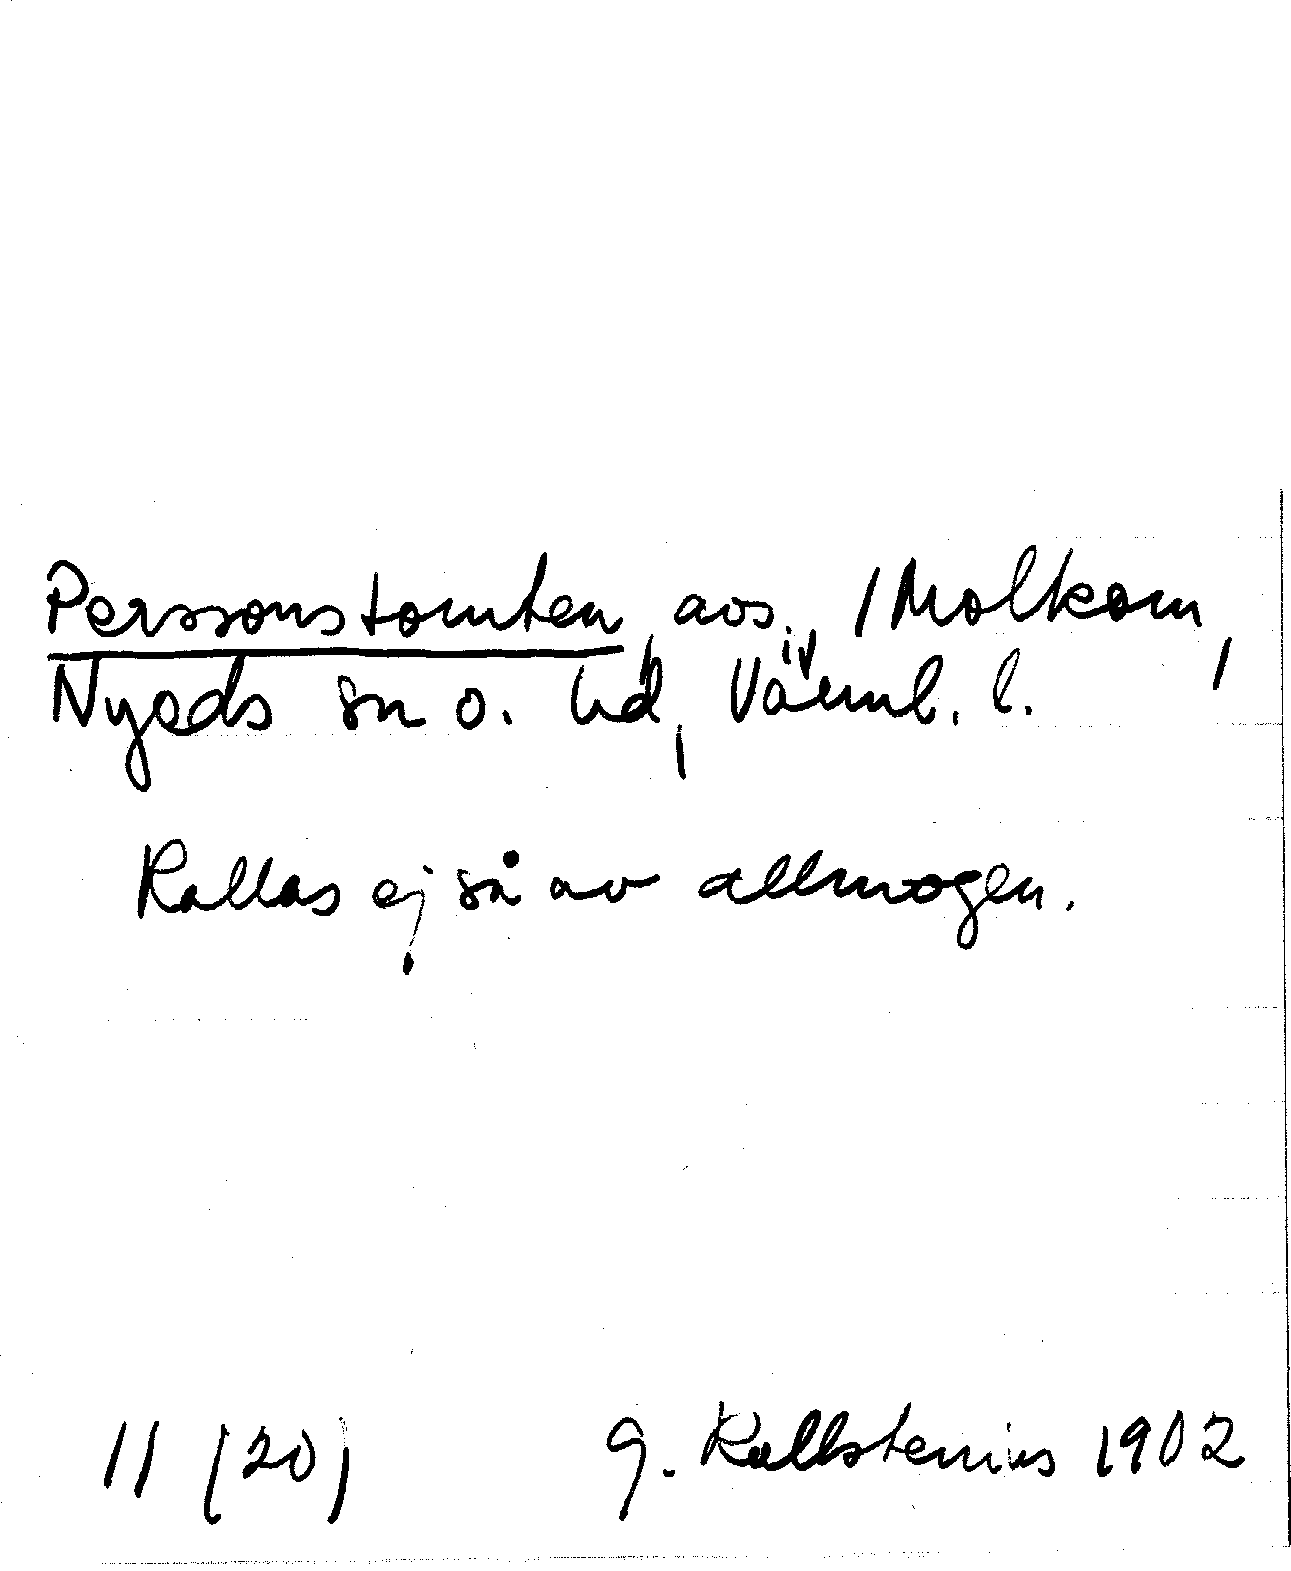 Perssonstomten, avs., /Molkom,
Nyeds sn o. hd, Värml. l.
Kallas ej så av allmogen.
11 (20) G. Kallstenius 1902